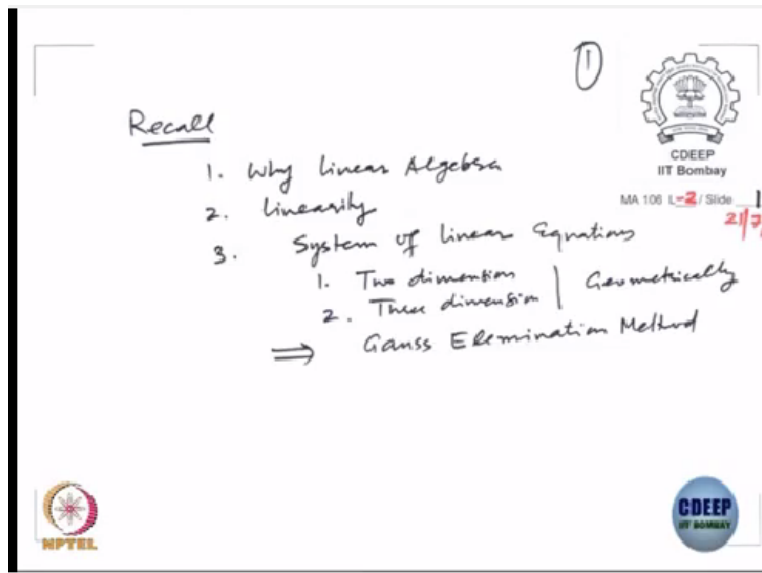 1
CDEEP
IIT Bombay
MA 106 L-2 / Slide 1
21/7
Recall
1. Why Linear Algebra
2. Linearity
3. System of linear Equations
1. Two dimention
2. Three dimension | Geometrically
⇒ Gauss Elemination Method
NPTEL
CDEEP
IIT BOMBAY